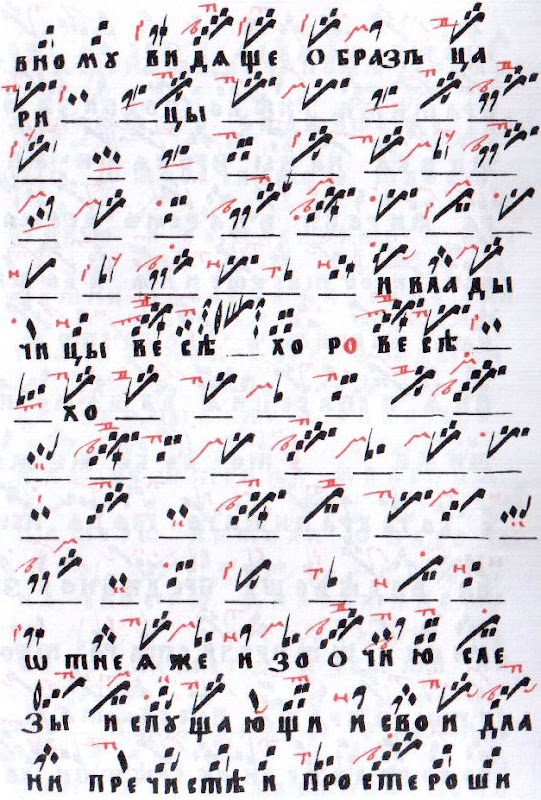 ВНОМУ ВИДѦЩЕ ОБРАЗѢ ЦА
РИ ЦЫ
И ВЛАДЫ
ЧИЦЫ ВЕ СѢ ХО РО ВЕ СѢ
ХО
Ѿ ТНЕ ѦЖЕ И ЗО О ЧИ Ю СЛЕ
ЗЫ И СПУЩАЮЩИ И СВО И ДЛА
НИ ПРЕЧИСТѢ И ПРОСТЕРОШИ